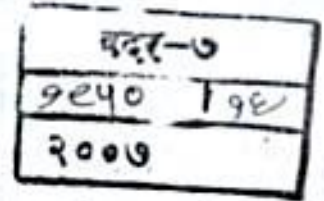 बदर-७
१९५० | १६
२००७